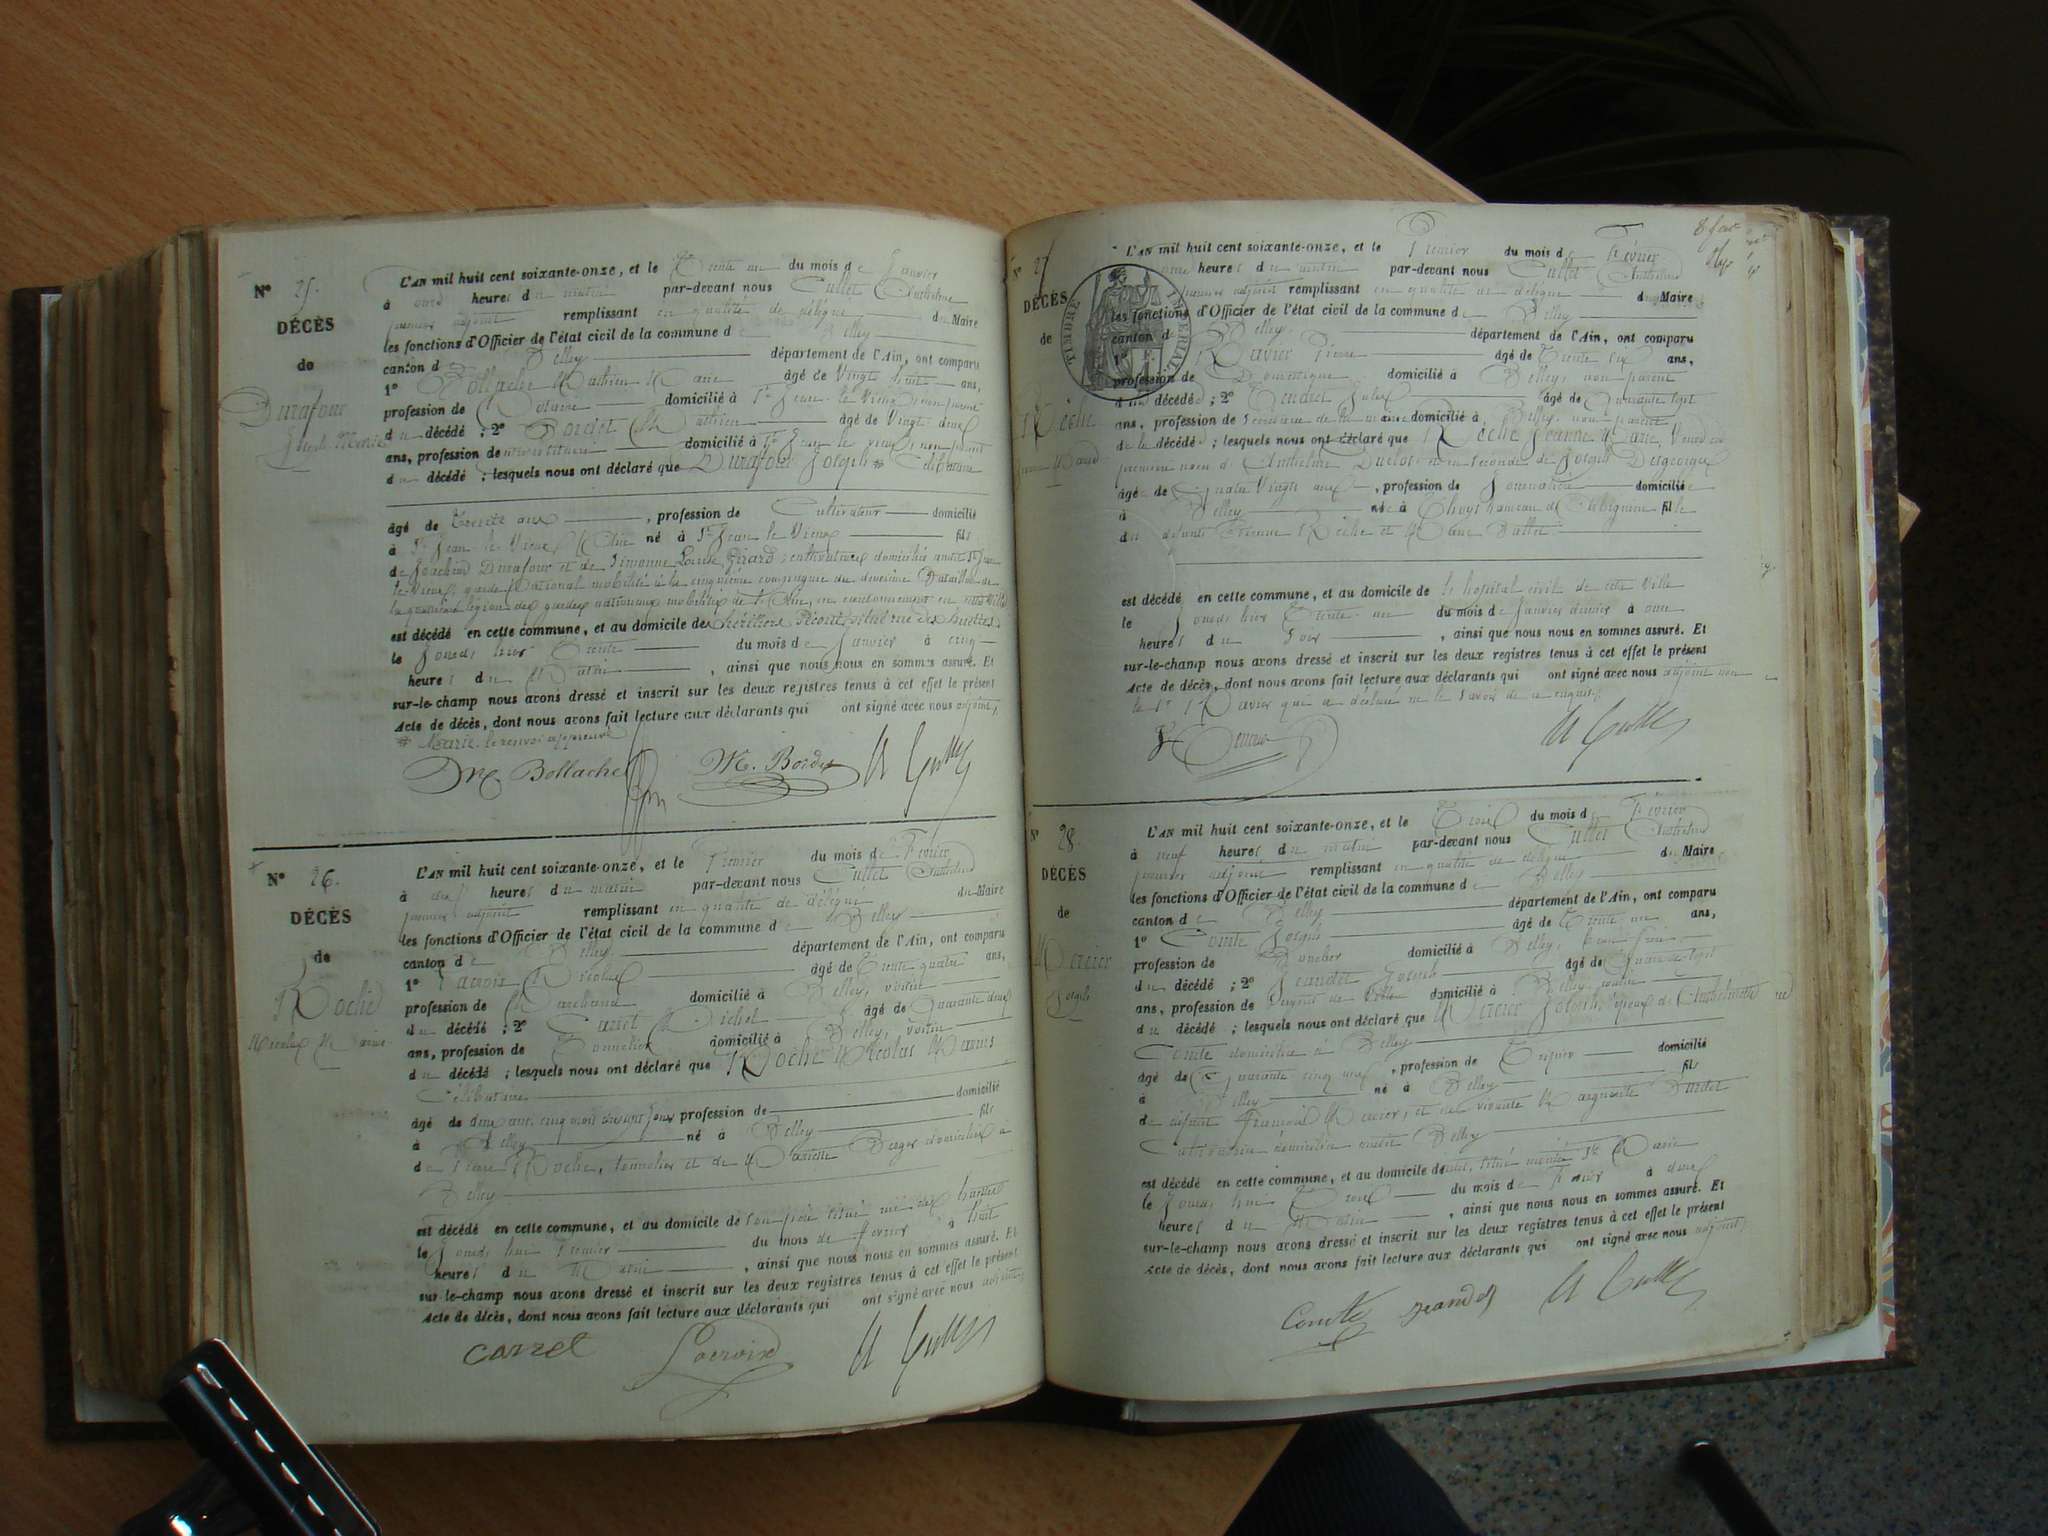 N° 25.
DÉCÈS
de
Durafour
Joseph Marie
L'AN mil huit cent soixante-onze, et le Trente un du mois de Janvier
à onze heures du matin par-devant nous Cullet Anthelme
premier adjoint remplissant en qualité de délégué du Maire
les fonctions d'Officier de l'état civil de la commune de Belley
canton de Belley département de l'Ain, ont comparu
1° Bollache Mathieu Marie âgé de Vingt huit ans,
profession de Notaire domicilié à St Jean le Vieux, non parent
du décédé ; 2° Bordet âgé de Vingt deux
ans, profession de instituteur domicilié à St Jean le vieux, non parent
du décédé ; lesquels nous ont déclaré que Durafour Joseph # Célibataire
âgé de Trente ans , profession de Cultivateur domicilié
à St Jean le Vieux (Ain) né à St Jean le Vieux fils
de Joachim Durafour et de Simonne Louise Girard, cultivateurs domiciliés audit St Jean
le Vieux, garde National mobilisé à la cinquième compagnie du deuxième Bataillon de
la quatrième légion des gardes nationaux mobilisés de l'Ain, en cantonnement en cette Ville
est décédé en cette commune, et au domicile des héritiers Récourt, situé rue des
le Jourd, hier Trente du mois de Janvier à cinq
heures du Matin , ainsi que nous nous en sommes assuré. Et
sur-le-champ nous avons dressé et inscrit sur les deux registres tenus à cet effet le présent
Acte de décès, dont nous avons fait lecture aux déclarants qui ont signé avec nous adjoint,
# Marie. le renvoi approuvé
Bollache M. Bordet A Cullet
N° 26.
DÉCÈS
de
Roche
Nicolas Marius
L'AN mil huit cent soixante-onze, et le Premier du mois de Février
à dix heures du matin par-devant nous Cullet Anthelme
premier adjoint remplissant en qualité de délégué du Maire
les fonctions d'Officier de l'état civil de la commune de Belley
canton de Belley département de l'Ain, ont comparu
1° Lacroix Nicolas âgé de Trente quatre ans,
profession de Marchand domicilié à Belley, voisin
du décédé ; 2° Carrel Michel âgé de Quarante deux
ans, profession de Tonnelier domicilié à Belley, voisin
du décédé ; lesquels nous ont déclaré que Roche Nicolas Marius
Célibataire
âgé de deux ans, cinq mois profession de domicilié
à Belley né à Belley fils
de Pierre Roche, tonnelier et de Mariette Berger domiciliés à
Belley
est décédé en cette commune, et au domicile de son père situé rue des
le Jourd, hui Premier du mois de Février à huit
heures du Matin , ainsi que nous nous en sommes assuré. Et
sur-le-champ nous avons dressé et inscrit sur les deux registres tenus à cet effet le présent
Acte de décès, dont nous avons fait lecture aux déclarants qui ont signé avec nous adjoint,
Carrel Lacroix A Cullet
N° 27
DÉCÈS
de
Rèche
TIMBRE IMPÉRIAL
L'AN mil huit cent soixante-onze, et le Premier du mois de Février
onze heures du matin par-devant nous Cullet Anthelme
premier adjoint remplissant en qualité de délégué du Maire
les fonctions d'Officier de l'état civil de la commune de Belley
canton de Belley département de l'Ain, ont comparu
1° Ravier Pierre âgé de Trente six ans,
profession de Domestique domicilié à Belley, non parent
du décédé ; 2° Tendret Jules âgé de Quarante sept
ans, profession de Secrétaire de la mairie domicilié à Belley, non parent
de la décédée ; lesquels nous ont déclaré que Rèche Jeanne Marie, Veuve en
première noces d'Anthelme Duclos et en seconde de Joseph Desgeorges
âgée de Quatre Vingts ans , profession de Journalière domiciliée
à Belley née à hameau de fille
des défunts Etienne Rèche et Marie Ballet
est décédé en cette commune, et au domicile de le hôpital civil de cette Ville
le Jourd, hier Trente un du mois de Janvier dernier à onze
heures du Soir , ainsi que nous nous en sommes assuré. Et
sur-le-champ nous avons dressé et inscrit sur les deux registres tenus à cet effet le présent
Acte de décès, dont nous avons fait lecture aux déclarants qui ont signé avec nous adjoint non
le Sr Ravier que a déclaré ne le Savoir de ce enquis,
A Cullet
N° 28.
DÉCÈS
de
Mercier
Joseph
L'AN mil huit cent soixante-onze, et le Trois du mois de Février
à neuf heures du matin par-devant nous Cullet Anthelme
premier adjoint remplissant en qualité de délégué du Maire
les fonctions d'Officier de l'état civil de la commune de Belley
canton de Belley département de l'Ain, ont comparu
1° Comte Joseph âgé de Trente un ans,
profession de Boucher domicilié à Belley, beau frère
du décédé ; 2° Jeandet Joseph âgé de Quarante sept
ans, profession de Sergent de Ville domicilié à Belley, voisin
du décédé ; lesquels nous ont déclaré que Mercier Joseph, époux de Anthelmette
Comte domiciliée à Belley
âgé de Quarante cinq ans , profession de Tripier domicilié
à Belley né à Belley fils
de défunt François Mercier, et de vivante Marguerite
domiciliée audit Belley
est décédé en cette commune, et au domicile situé montée Ste Marie
le Jourd, hui Trois du mois de Février à deux
heures du Matin , ainsi que nous nous en sommes assuré. Et
sur-le-champ nous avons dressé et inscrit sur les deux registres tenus à cet effet le présent
Acte de décès, dont nous avons fait lecture aux déclarants qui ont signé avec nous adjoint,
Comte Jeandet A Cullet